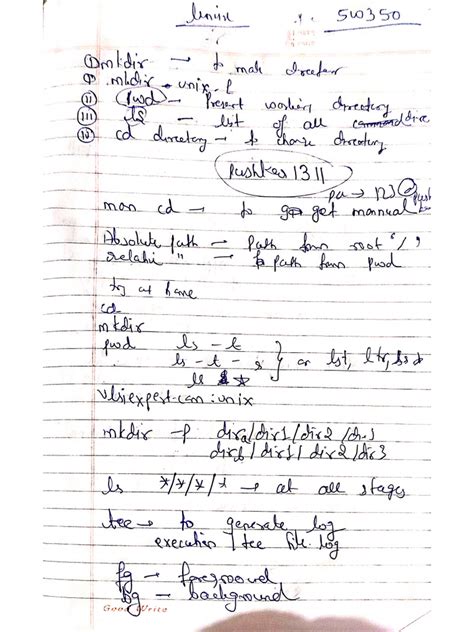 Unix 5W350
① mkdir → to make directory
① mkdir - unix - f
ⓘⓘ pwd — Present working directory
ⓘⓘⓘ ls — list of all command dire
ⓘⓥ cd directory → to change directory
pushkar 1311
pa → 123@push
man cd → to go get mannual
Absolute path — Path from root "/"
relati " — to path from pwd
try at home
cd
mkdir
pwd ls -t
ls -t -r } or lst, ltr,
ls
vlsiexpert.com:unix
mkdir -p dira/dir1/dir2/dir3
dirb/dir1/dir2/dir3
ls */*/*/* → at all stages
tee → to generate log
execution | tee file.log
fg → foreground
bg → background
Good Write